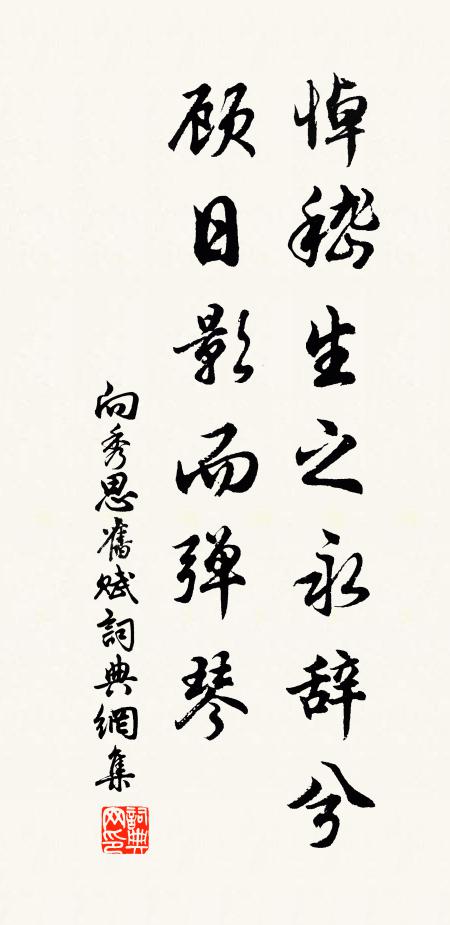 悼嵇生之永辞兮
顾日影而弹琴
向秀思舊赋詞典網集
詞典网印